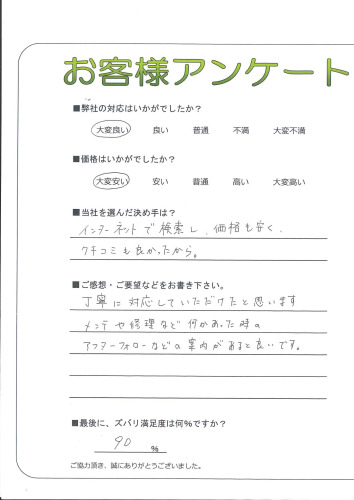 お客様アンケート
■弊社の対応はいかがでしたか？
大変良い 良い 普通 不満 大変不満
■価格はいかがでしたか？
大変安い 安い 普通 高い 大変高い
■当社を選んだ決め手は？
インターネットで検索し、価格も安く、
クチコミも良かったから。
■ご感想・ご要望などをお書き下さい。
丁寧に対応していただけたと思います
メンテや修理など何かあった時の
アフターフォローなどの案内があると良いです。
■最後に、ズバリ満足度は何％ですか？
90 ％
ご協力頂き、誠にありがとうございました。